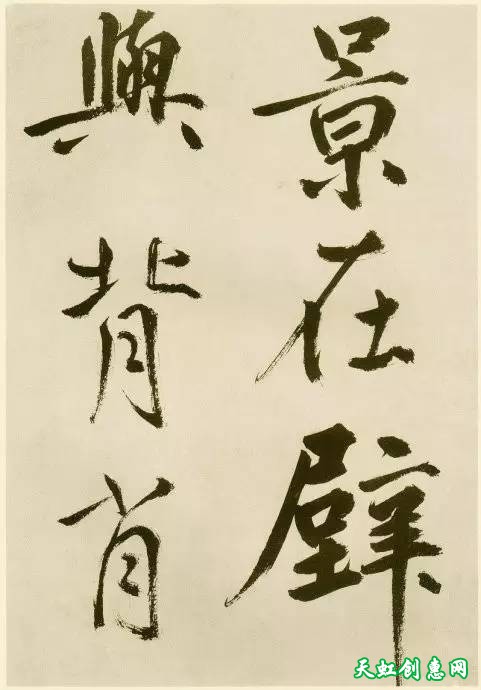 景在壁
與背肖
天虹创惠网